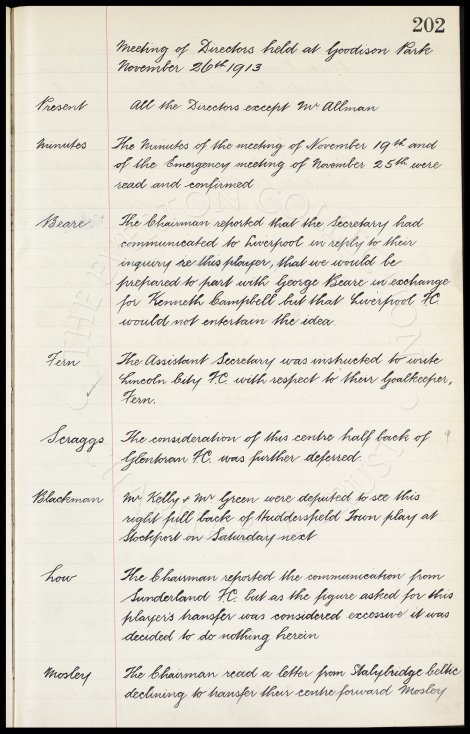 202
Meeting of Directors held at Goodison Park
November 26th 1913
Present All the Directors except Mr Allman
Minutes The Minutes of the meeting of November 19th and
of the Emergency meeting of November 25th were
read and confirmed
Beare The Chairman reported that the Secretary had
communicated to Liverpool in reply to their
inquiry re this player, that we would be
prepared to part with George Beare in exchange
for Kenneth Campbell but that Liverpool F.C.
would not entertain the idea.
Fern The Assistant Secretary was instructed to write
Lincoln City F.C. with respect to their Goalkeeper,
Fern.
Scraggs The consideration of this centre half back of
Glentoran F.C. was further deferred
Blackman Mr Kelly & Mr Green were deputed to see this
right full back of Huddersfield Town play at
Stockport on Saturday next
Low The Chairman reported the communication from
Sunderland F.C. but as the figure asked for this
player's transfer was considered excessive it was
decided to do nothing herein
Mosley The Chairman read a letter from Stalybridge Celtic
declining to transfer their centre forward Mosley